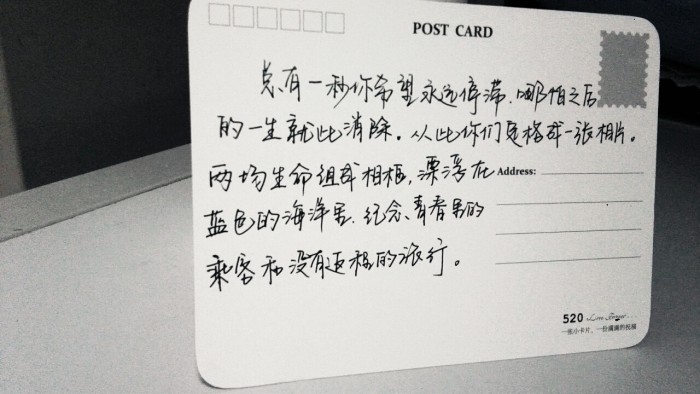 POST CARD
总有一秒你希望永远停滞，哪怕之后
的一生就此消除。从此你们定格成一张相片。
两场生命组成相框，漂浮在
Address:
蓝色的海洋里，纪念青春里的
乘客和没有返程的旅行。
520 Love Forever
一张小卡片，一份满满的祝福